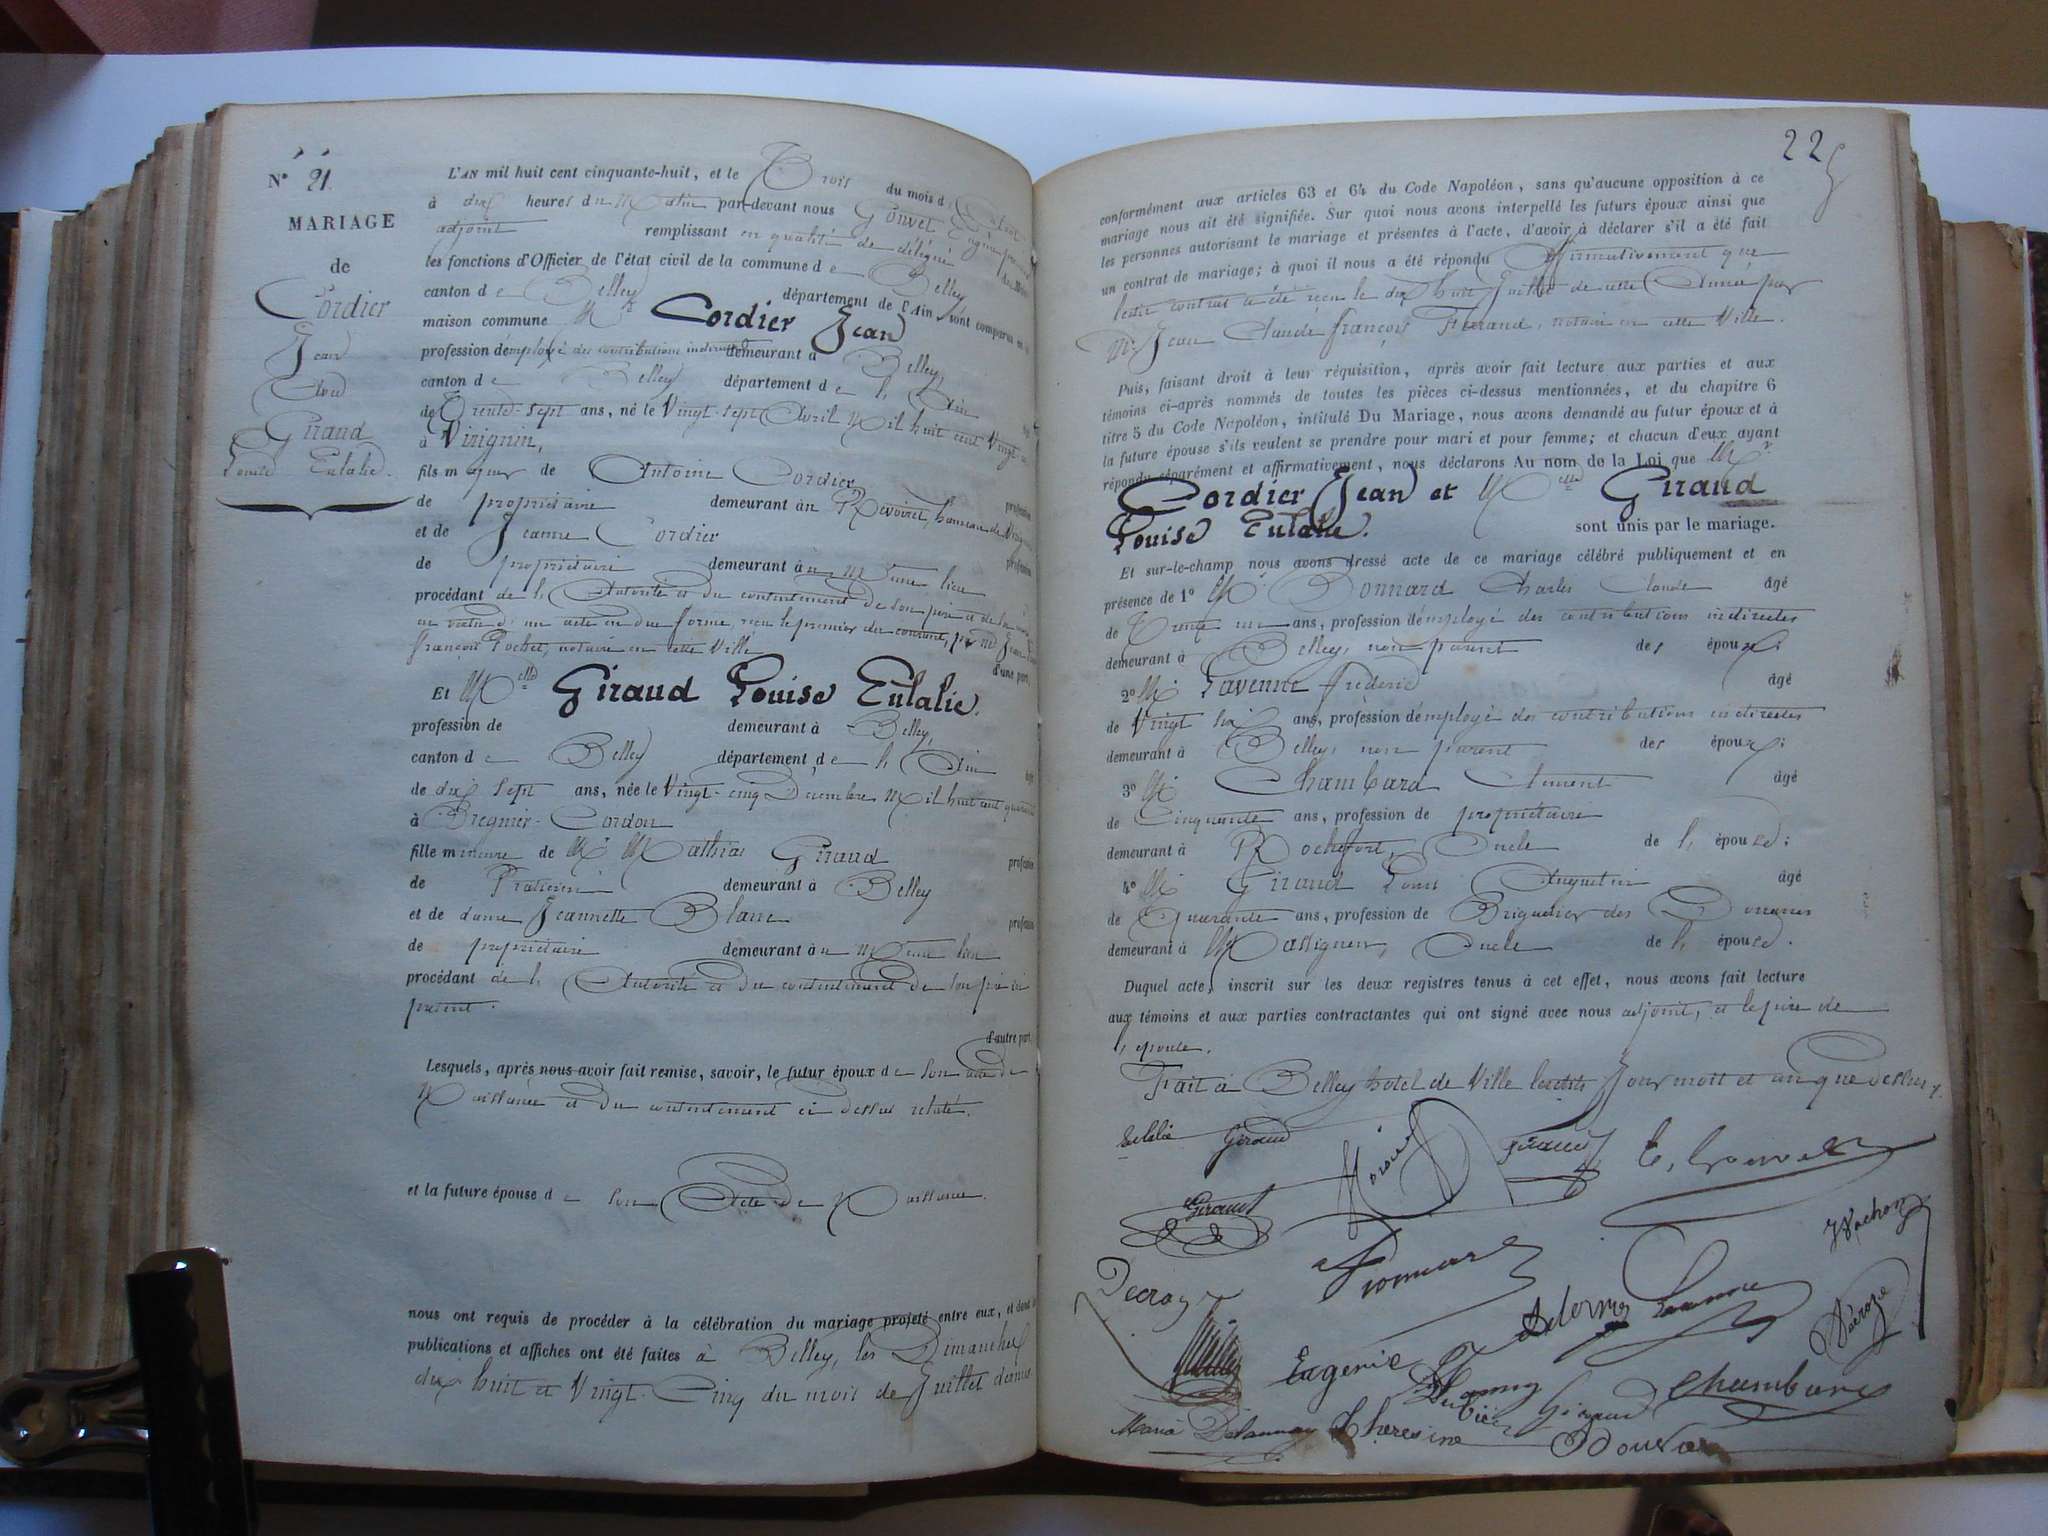 N° 21.
MARIAGE
de
Cordier
Jean
Avec
Giraud
Louise Eulalie.
L'AN mil huit cent cinquante-huit, et le Trois du mois d'Août
à dix heures du Matin par-devant nous Gonvet Eugène, premier
adjoint remplissant en qualité de délégué du Maire
les fonctions d'Officier de l'état civil de la commune de Belley
canton de Belley département de l'Ain, sont comparus en la
maison commune Mr Cordier Jean
profession d'employé des contributions indirectes demeurant à Belley,
canton de Belley département de l'Ain
de Trente-sept ans, né le Vingt-sept Avril Mil huit cent Vingt un
à Virignin,
fils majeur de Antoine Cordier profession
de propriétaire demeurant à Revoiret, hameau de Virignin
et de Jeanne Cordier profession
de propriétaire demeurant au Même lieu
procédant de l'Autorité et du consentement de son père et de sa mère
en vertu d'un acte en due forme, reçu le premier du courant, par Me Jean
françois Pochet, notaire en cette Ville d'une part,
Et Melle Giraud Louise Eulalie.
profession de demeurant à Belley,
canton de Belley département de l'Ain âgée
de dix sept ans, née le Vingt-cinq Décembre Mil huit cent quarante
à Bregnier-Cordon
fille mineure de Mr Mathias Giraud profession
de Praticien demeurant à Belley
et de dame Jeannette Blanc profession
de propriétaire demeurant au Même lieu
procédant de l'Autorité et du consentement de son père ici
présent. d'autre part.
Lesquels, après nous avoir fait remise, savoir, le futur époux de son acte de
Naissance et du consentement ci dessus relaté.
et la future épouse de son Acte de Naissance.
nous ont requis de procéder à la célébration du mariage projeté entre eux, et dont les
publications et affiches ont été faites à Belley, les Dimanches
dix huit et Vingt-Cinq du mois de Juillet dernier
225
conformément aux articles 63 et 64 du Code Napoléon, sans qu'aucune opposition à ce
mariage nous ait été signifiée. Sur quoi nous avons interpellé les futurs époux ainsi que
les personnes autorisant le mariage et présentes à l'acte, d'avoir à déclarer s'il a été fait
un contrat de mariage; à quoi il nous a été répondu Affirmativement que
leur contrat a été reçu le dix huit Juillet de cette Année par
Me Jean Claude françois Ferrand, notaire en cette Ville.
Puis, faisant droit à leur réquisition, après avoir fait lecture aux parties et aux
témoins ci-après nommés de toutes les pièces ci-dessus mentionnées, et du chapitre 6
titre 5 du Code Napoléon, intitulé Du Mariage, nous avons demandé au futur époux et à
la future épouse s'ils veulent se prendre pour mari et pour femme; et chacun d'eux ayant
répondu séparément et affirmativement, nous déclarons Au nom de la Loi que Mr
Cordier Jean et Melle Giraud
Louise Eulalie. sont unis par le mariage.
Et sur-le-champ nous avons dressé acte de ce mariage célébré publiquement et en
présence de 1° M. Bonnard Charles Claude âgé
de Trente un ans, profession d'employé des contributions indirectes
demeurant à Belley, non parent des époux;
2° M. Lavenne frédéric âgé
de Vingt six ans, profession d'employé des contributions indirectes
demeurant à Belley, non parent des époux;
3° M. Chambard Clément âgé
de Cinquante ans, profession de propriétaire
demeurant à Rochefort, Oncle de l'épouse;
4° M. Giraud Louis Augustin âgé
de Quarante ans, profession de Brigadier des Douanes
demeurant à Massignieu, Oncle de l'épouse.
Duquel acte, inscrit sur les deux registres tenus à cet effet, nous avons fait lecture
aux témoins et aux parties contractantes qui ont signé avec nous adjoint, et le père de
l'épouse.
Fait à Belley hôtel de Ville lesdits Jour mois et an que dessus.
Eulalie Giraud
Giraud
E. Gonvet
Giraud
Bonnard
Vachon
Decroze
Lavenne
Decroze
Eugenie
Giraud
Chambard
Maria Delaunay Theresine